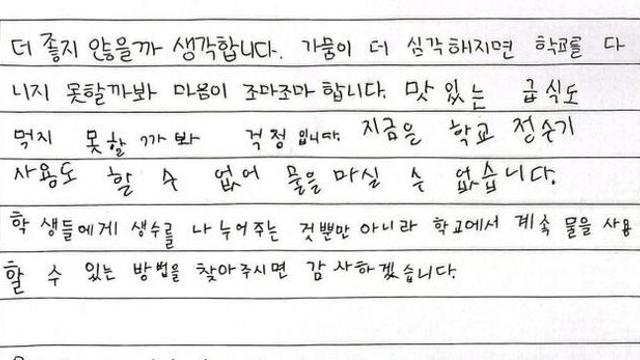 더 좋지 않을까 생각합니다. 가뭄이 더 심각해지면 학교를 다
니지 못할까봐 마음이 조마조마합니다. 맛있는 급식도
먹지 못할까봐 걱정입니다. 지금은 학교 정수기
사용도 할 수 없어 물을 마실 수 없습니다.
학생들에게 생수를 나누어주는 것뿐만 아니라 학교에서 계속 물을 사용
할 수 있는 방법을 찾아주시면 감사하겠습니다.